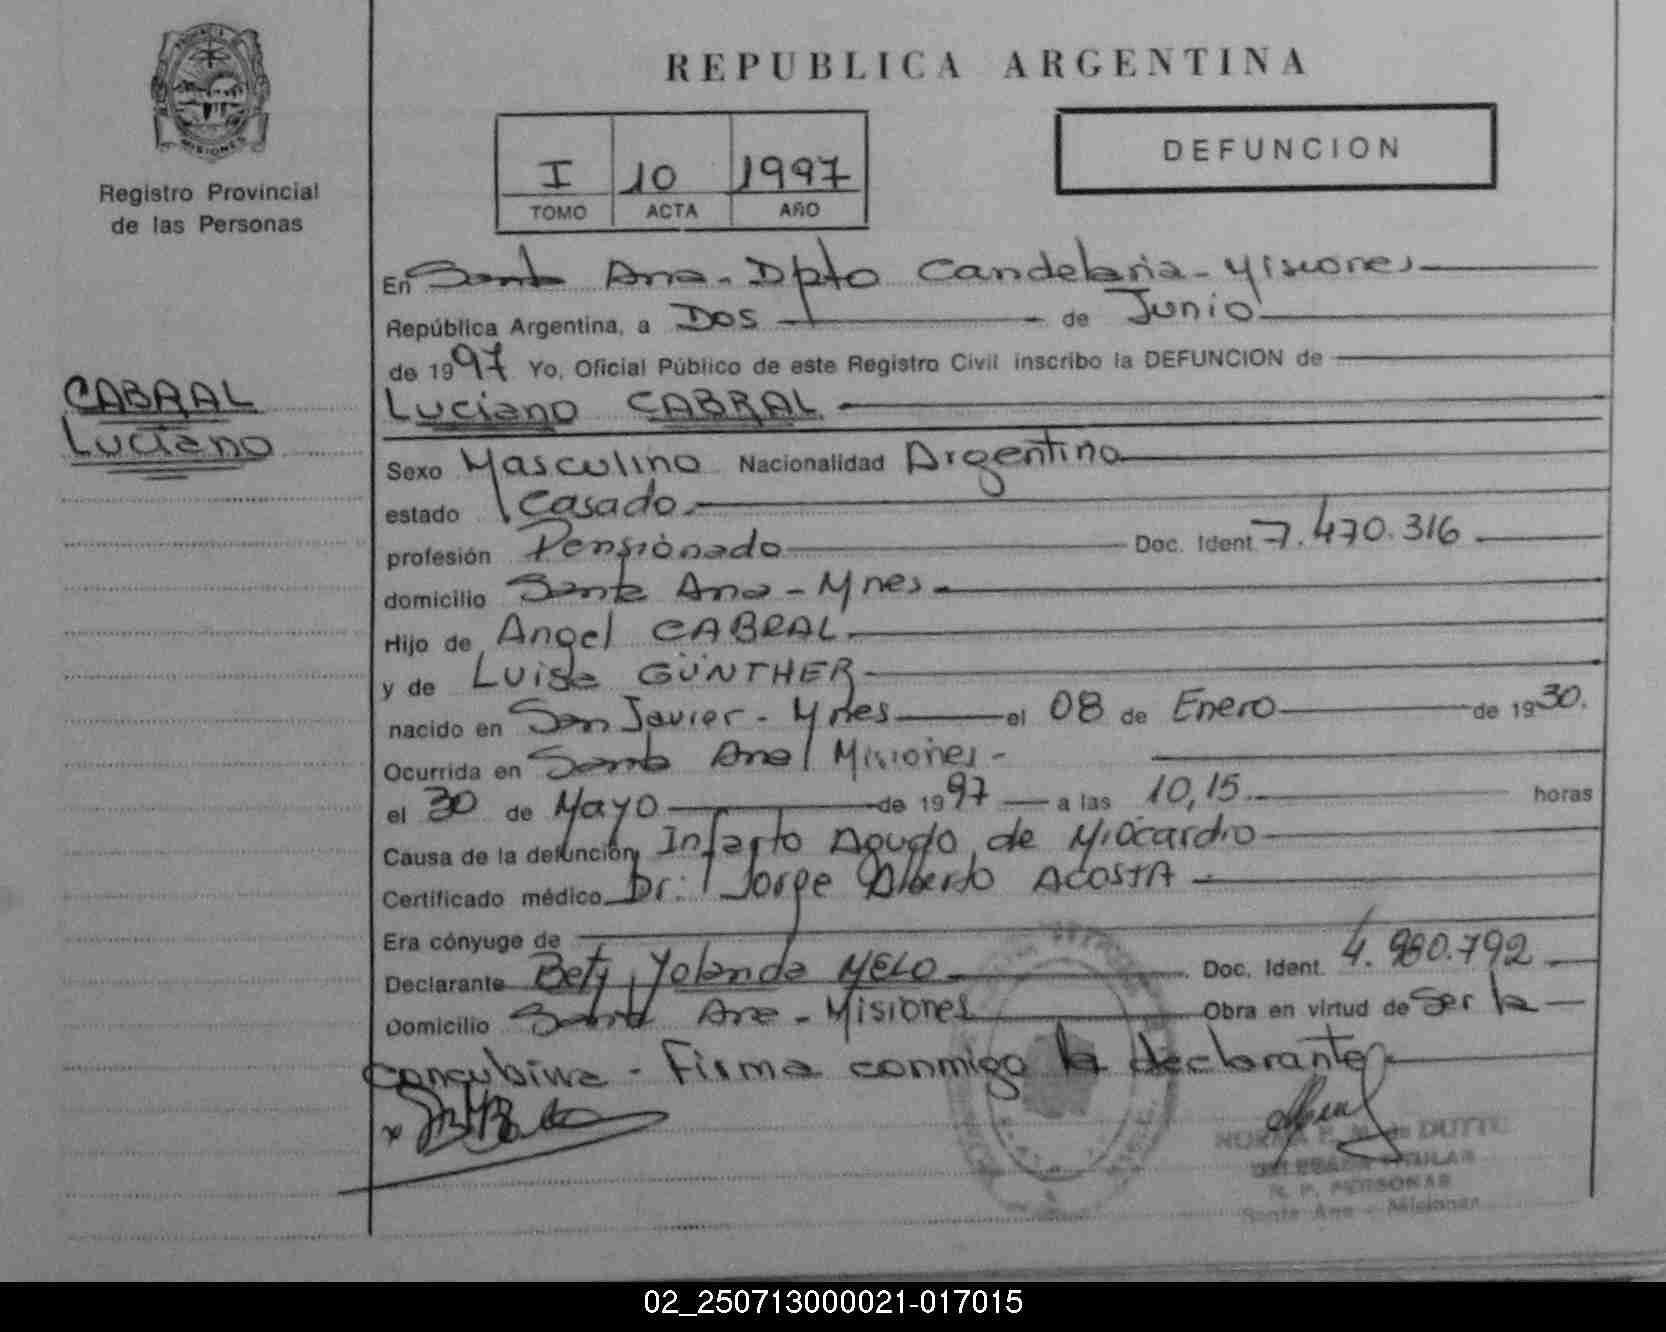 REPUBLICA ARGENTINA
MISIONES
Registro Provincial
de las Personas
I 10 1997
TOMO ACTA AÑO
DEFUNCION
CABRAL
Luciano
En Santa Ana - Dpto Candelaria - Misiones
República Argentina, a Dos de Junio
de 1997 Yo, Oficial Público de este Registro Civil inscribo la DEFUNCION de
Luciano CABRAL
Sexo Masculino Nacionalidad Argentina
estado Casado
profesión Pensionado Doc. Ident. 7.470.316
domicilio Santa Ana - Mnes
Hijo de Angel CABRAL
y de Luisa GÜNTHER
nacido en San Javier - Mnes el 08 de Enero de 1930.
Ocurrida en Santa Ana Misiones -
el 30 de Mayo de 1997 a las 10,15 horas
Causa de la defunción Infarto Agudo de Miocardio
Certificado médico Dr. Jorge Alberto ACOSTA
Era cónyuge de
Declarante Bety Yolanda MELO Doc. Ident. 4.980.792
Domicilio Santa Ana - Misiones Obra en virtud de Ser la
Concubina - Firma conmigo la declarante
NORMA de DUTTO
DELEGADA TITULAR
R. P. PERSONAS
Santa Ana - Misiones
02_250713000021-017015